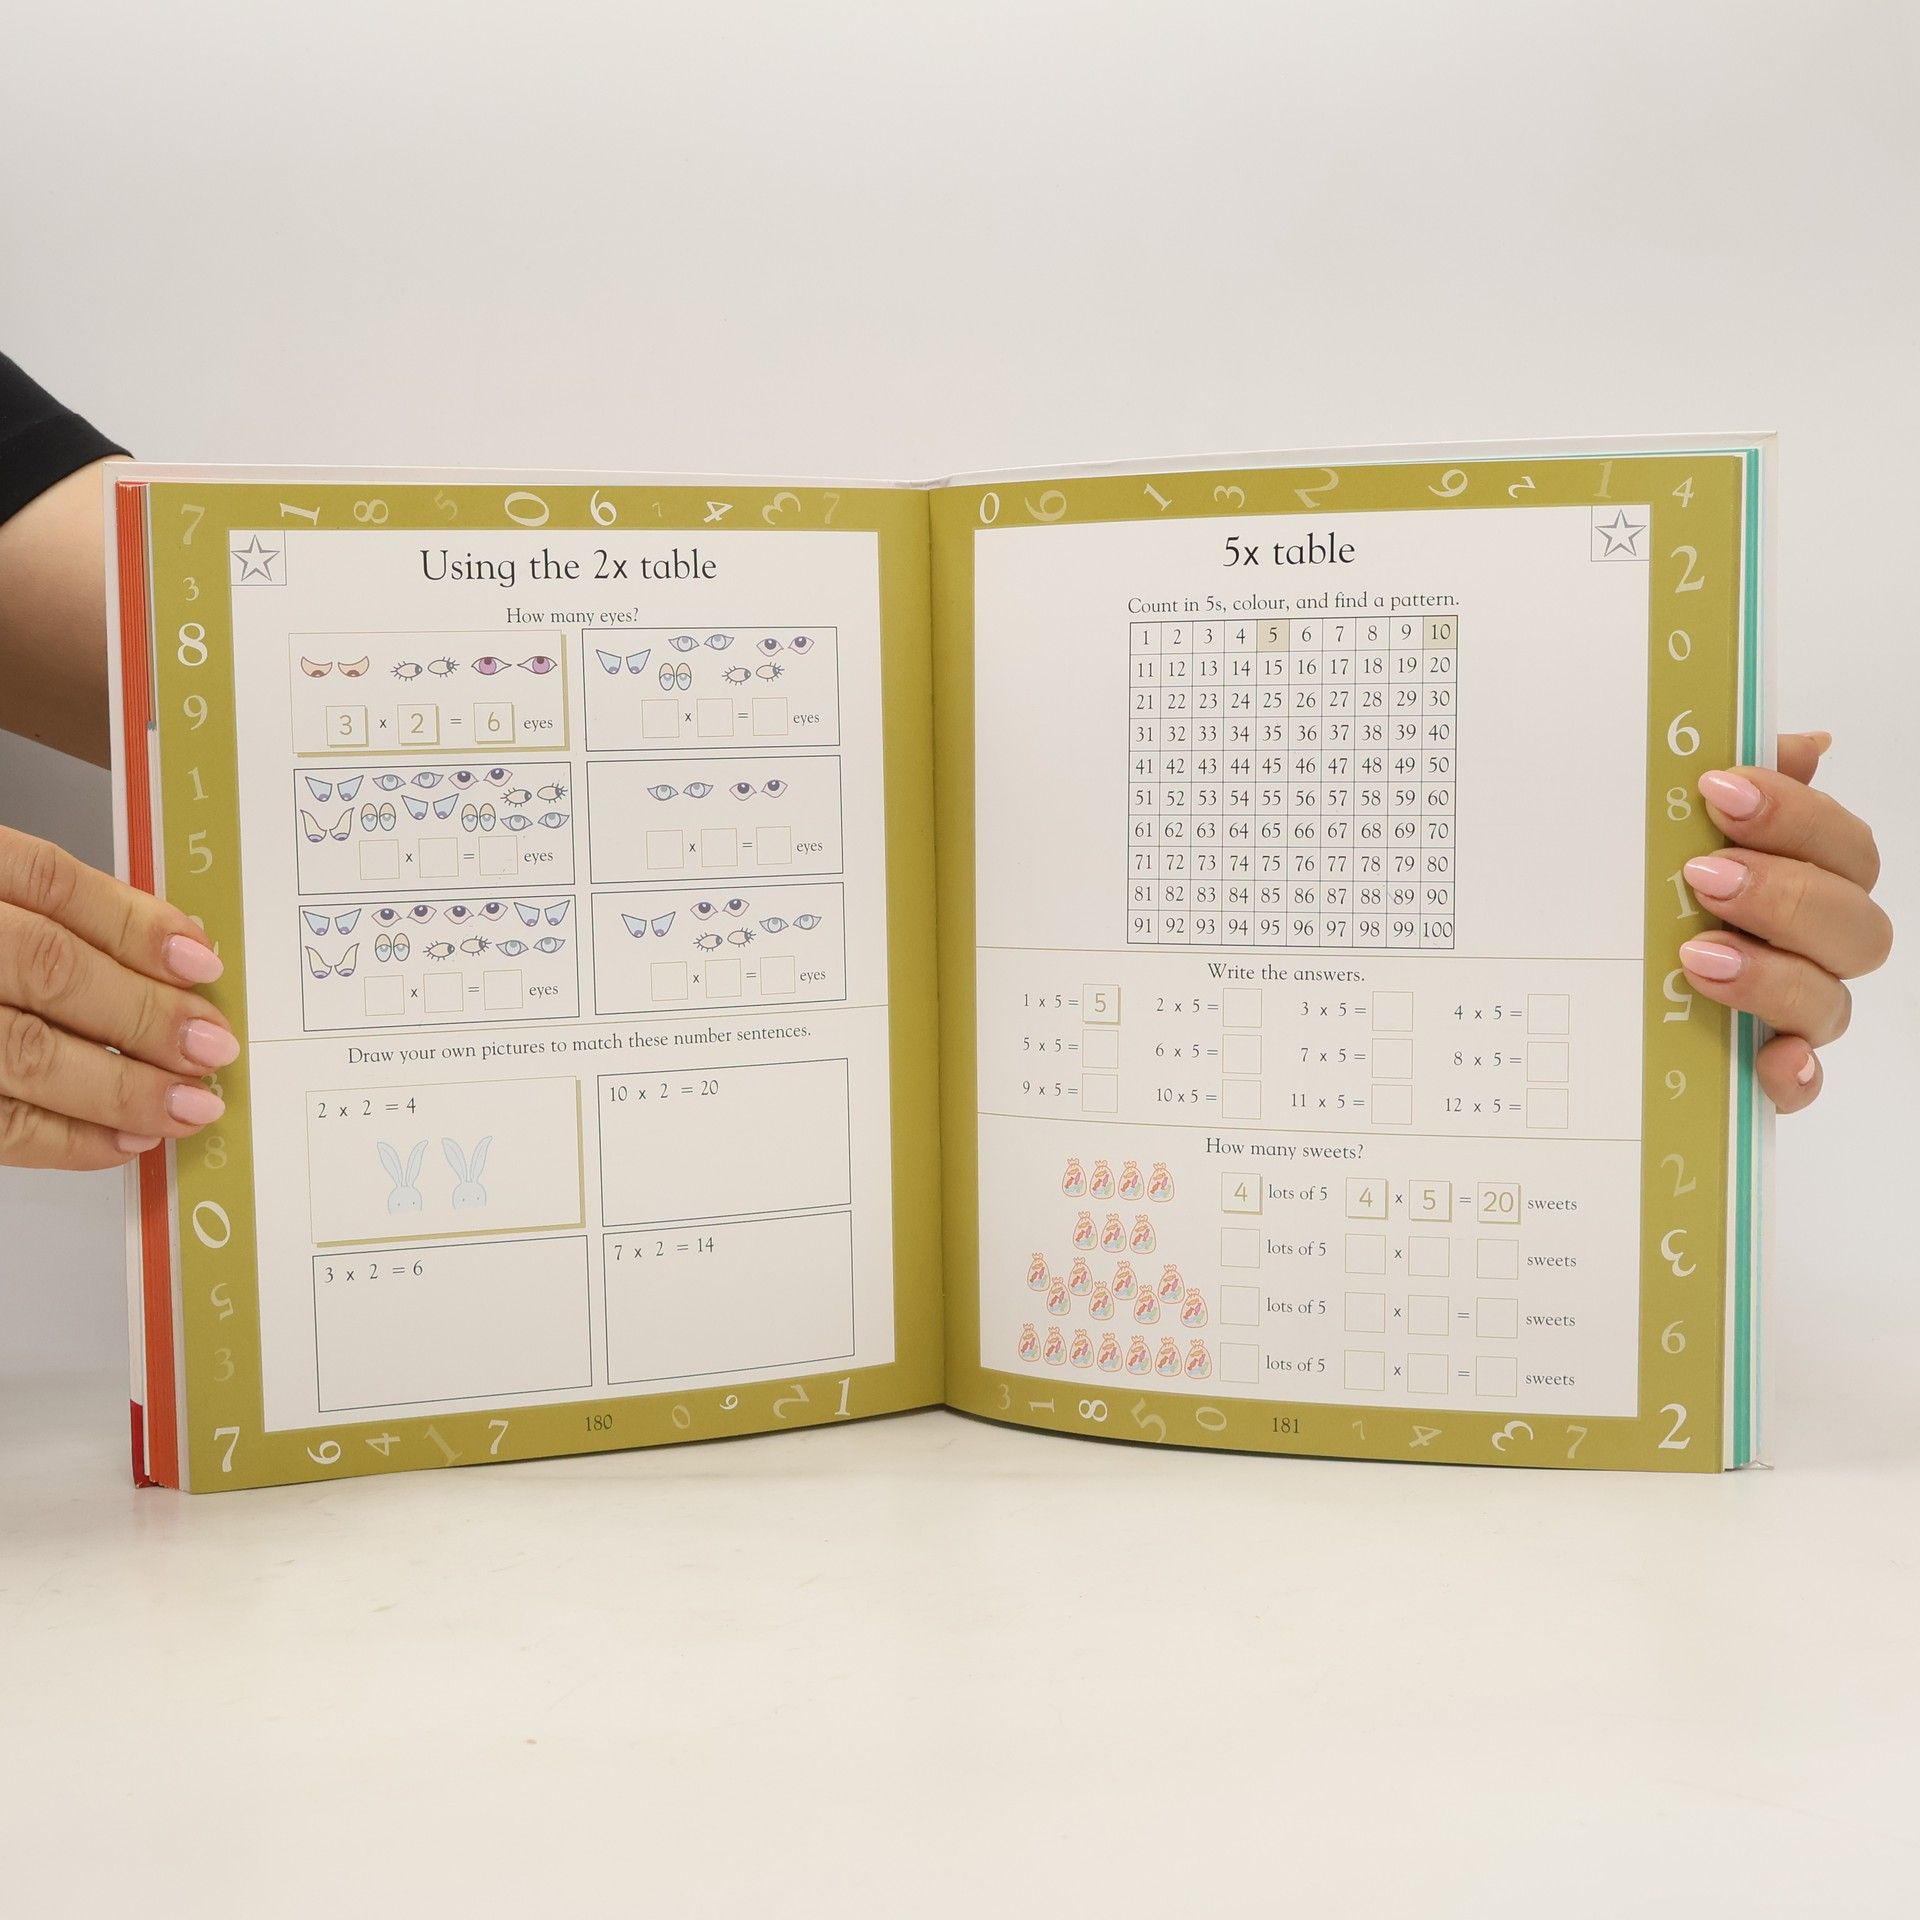 Using the 2x table
How many eyes?
3 x 2 = 6 eyes
x = eyes
x = eyes
x = eyes
x = eyes
x = eyes
Draw your own pictures to match these number sentences.
2 x 2 = 4
10 x 2 = 20
3 x 2 = 6
7 x 2 = 14
180
5x table
Count in 5s, colour, and find a pattern.
1 2 3 4 5 6 7 8 9 10
11 12 13 14 15 16 17 18 19 20
21 22 23 24 25 26 27 28 29 30
31 32 33 34 35 36 37 38 39 40
41 42 43 44 45 46 47 48 49 50
51 52 53 54 55 56 57 58 59 60
61 62 63 64 65 66 67 68 69 70
71 72 73 74 75 76 77 78 79 80
81 82 83 84 85 86 87 88 89 90
91 92 93 94 95 96 97 98 99 100
Write the answers.
1 x 5 = 5 2 x 5 = 3 x 5 = 4 x 5 =
5 x 5 = 6 x 5 = 7 x 5 = 8 x 5 =
9 x 5 = 10 x 5 = 11 x 5 = 12 x 5 =
How many sweets?
4 lots of 5 4 x 5 = 20 sweets
lots of 5 x sweets
lots of 5 x = sweets
lots of 5 x = sweets
181